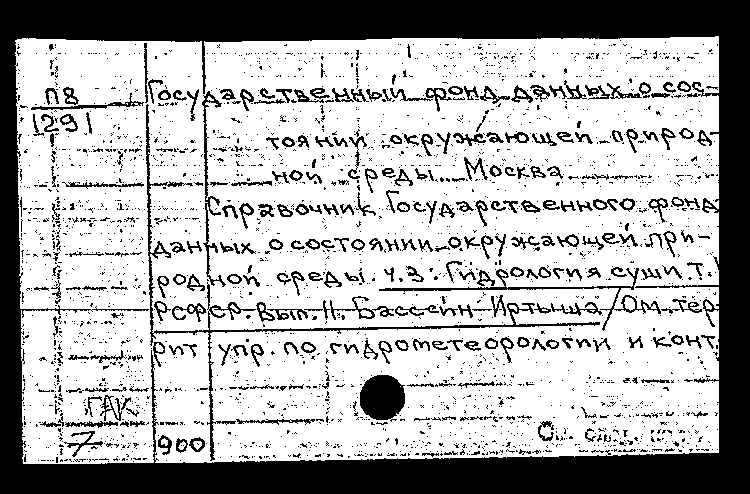 П8 Государственный фонд данных о сос-
1291
тоянии окружающей природ-
ной среды. Москва.
Справочник Государственного фонд
данных о состоянии окружающей при-
родной среды. Ч.3: Гидрология суши Т.1
РСФСР. Вып. 11. Бассейн Иртыша / Ом. тер-
рит упр. по гидрометеорологии и конт.
ГАК
7 900